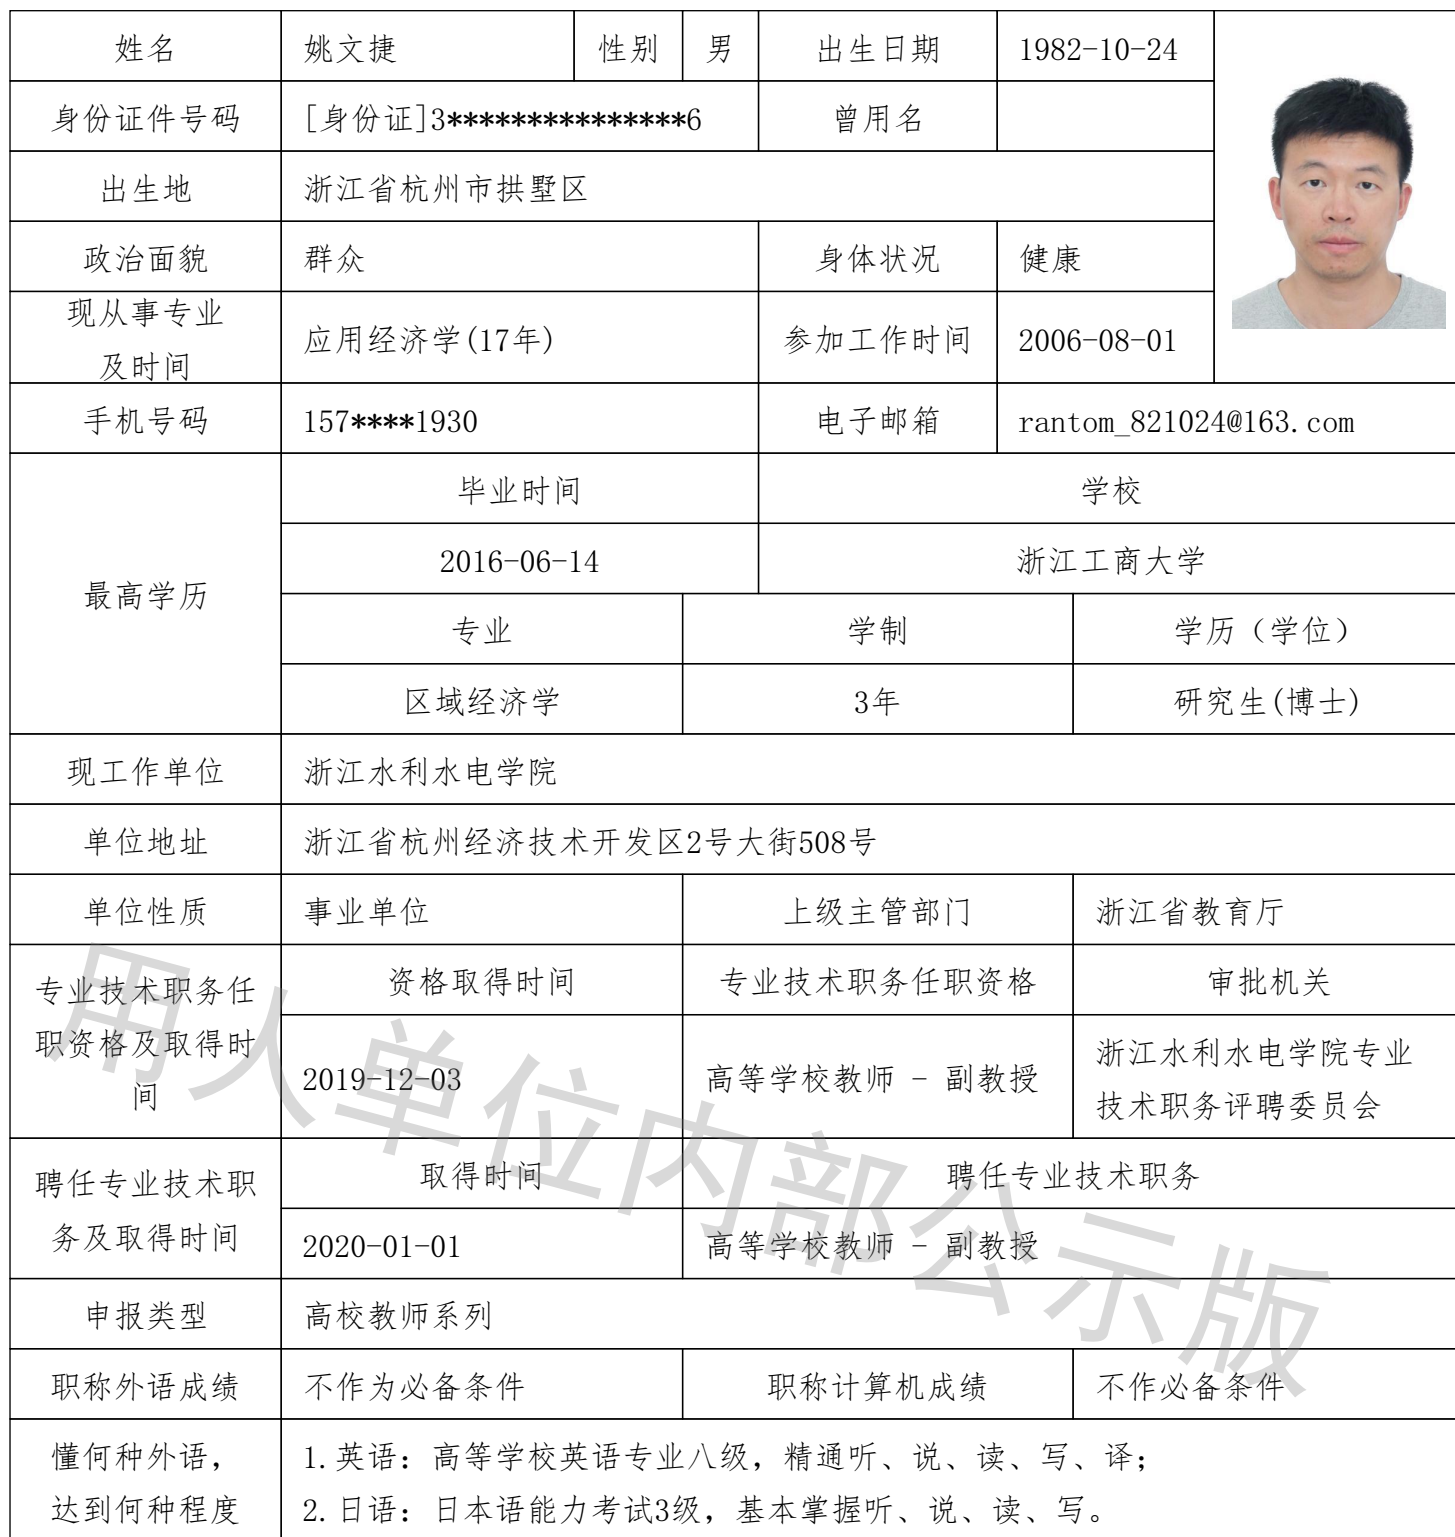 姓名 姚文捷 性别 男 出生日期 1982-10-24
身份证件号码 [身份证]3***************6 曾用名
出生地 浙江省杭州市拱墅区
政治面貌 群众 身体状况 健康
现从事专业
及时间
应用经济学(17年) 参加工作时间 2006-08-01
手机号码 157****1930 电子邮箱 rantom_821024@163.com
最高学历
毕业时间 学校
2016-06-14 浙江工商大学
专业 学制 学历（学位）
区域经济学 3年 研究生(博士)
现工作单位 浙江水利水电学院
单位地址 浙江省杭州经济技术开发区2号大街508号
单位性质 事业单位 上级主管部门 浙江省教育厅
专业技术职务任
职资格及取得时
间
资格取得时间 专业技术职务任职资格 审批机关
2019-12-03 高等学校教师 - 副教授
浙江水利水电学院专业
技术职务评聘委员会
聘任专业技术职
务及取得时间
取得时间 聘任专业技术职务
2020-01-01 高等学校教师 - 副教授
申报类型 高校教师系列
职称外语成绩 不作为必备条件 职称计算机成绩 不作必备条件
懂何种外语，
达到何种程度
1.英语：高等学校英语专业八级，精通听、说、读、写、译；
2.日语：日本语能力考试3级，基本掌握听、说、读、写。
用人单位内部公示版